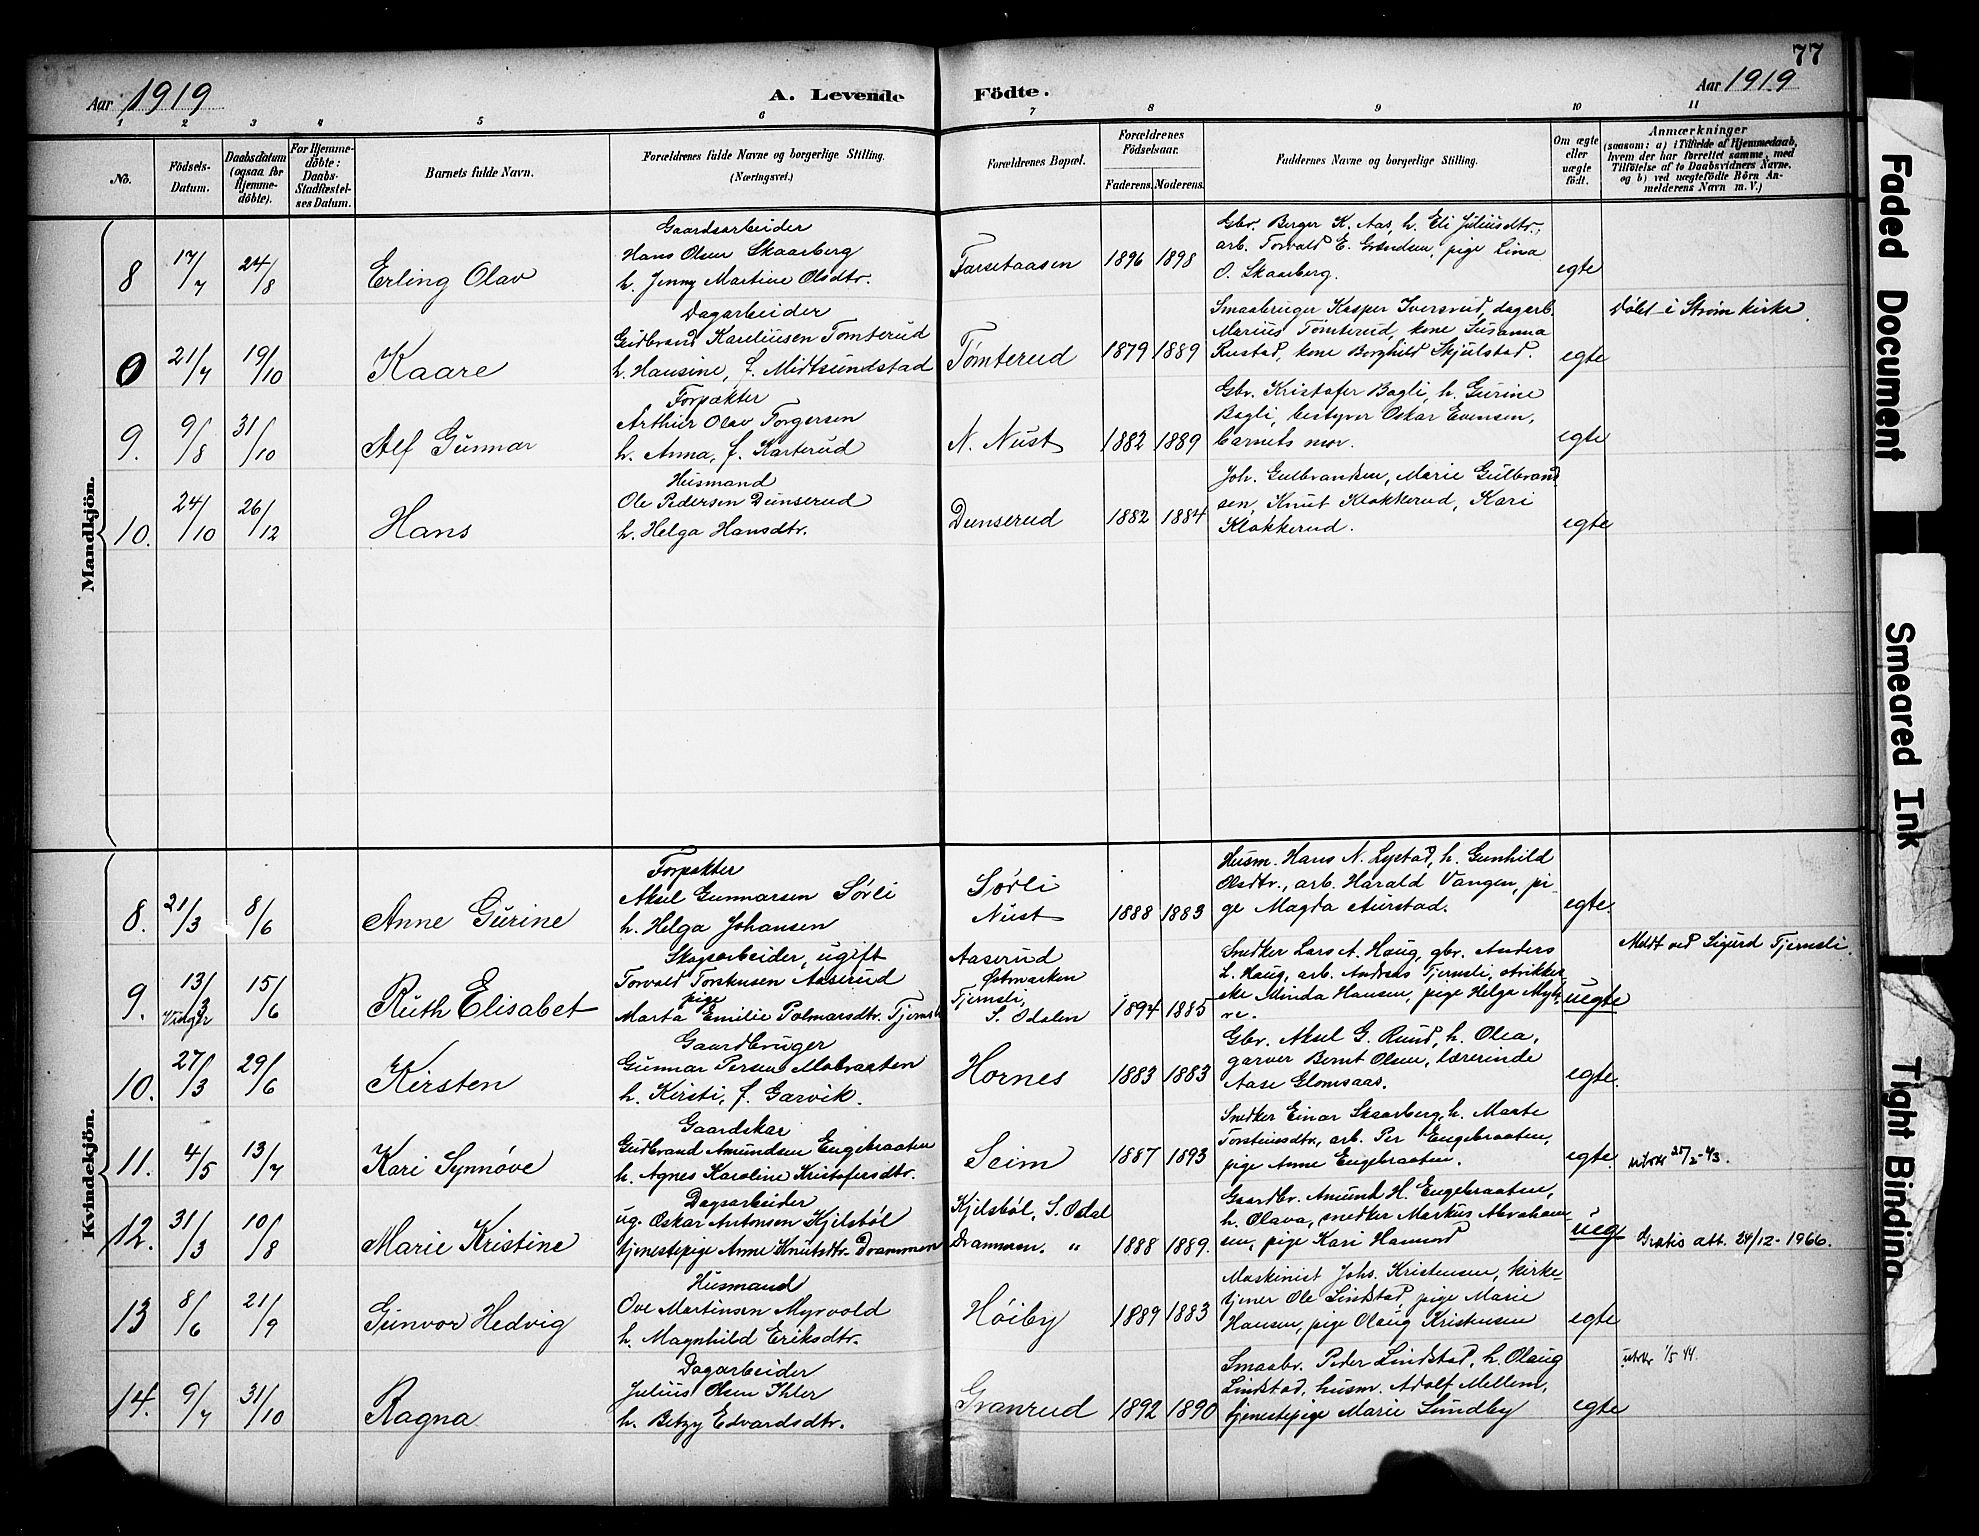 77
Aar 1919
A. Levende Födte.
Aar 1919
1 2 3 4 5 6 7 8 9 10 11
No.
Födsels-
Datum.
Daabsdatum
(ogsaa for
Hjemme-
døbte).
For Hjemme-
døbte:
Daabs-
Stadfæstel-
ses Datum.
Barnets fulde Navn.
Forældrenes fulde Navne og borgerlige Stilling.
(Næringsvei.)
Forældrenes Bopæl.
Forældrenes
Födselsaar.
Faderens. Moderens.
Faddernes Navne og borgerlige Stilling.
Om ægte
eller
uægte
født.
Anmærkninger
(saasom: a) i Tilfælde af Hjemmedaab,
hvem der har forrettet samme, med
Tilføielse af to Daabsvidners Navne.
og b) ved uægtefödte Börn An-
melderens Navn m. V.)
Mandkjön.
8 17/7 24/8 Erling Olav
Gaardsarbeider
Hans Olsen Skaarberg
h. Jenny Martine Olsdtr.
Farsetaasen 1896 1898
Gbr. Berger K. Aas, h. Eli Juliusdtr.,
arb. Torvald E. Grændsen, pige Lina
O. Skaarberg.
egte
0 21/7 19/10 Kaare
Dagarbeider
Gudbrand Kareliusen Tømterud
h. Hansine, f. Midtsundstad
Tømterud 1879 1889
Smaabruger Kasper Iversrud, dagarb.
Marius Tømterud, kone Susanna
Rustad, kone Borghild Skjulstad.
egte
Døbt i Strøm kirke.
9. 9/8 31/10 Alf Gunnar
Forpakter
Arthur Olav Torgersen
h. Anna, f. Karterud
N. Nust 1882 1889
Gbr. Kristofer Bagli, h. Gurine
Bagli, bestyrer Oskar Evensen,
barnets mor.
egte
10. 24/10 26/12 Hans
Husmand
Ole Pedersen Dunserud
h. Helga Hansdtr.
Dunserud 1882 1884
Joh. Gulbrandsen, Marie Gulbrand
sen, Knut Klokkerud, Kari
Klokkerud.
egte
Kvindekjön.
8. 21/3 8/6 Anne Gurine
Forpakter
Aksel Gunnarsen Sørli
h. Helga Johansen
Sørli
Nust
1888 1883
Husm. Hans N. Lystad, h. Gunhild
Olsdtr., arb. Harald Vangen, pi-
ge Magda Aurstad.
egte.
9. 13/3 15/6 Ruth Elisabet
Skogsarbeider, ugift
Torvald Torstensen Aaserud
pige
Marta Emilie Palmarsdtr. Tjernsli
Aaserud
Østmarken
Tjernsli,
S. Odalen
1894 1885
Snedker Lars A. Haug, gbr. Anders
L. Haug, arb. Andreas Tjernsli, strikker
ske Minda Hansen, pige Helga Myh-
re.
uegte
Meldt ved Sigurd Tjernsli.
10. 27/3 29/6 Kirsten
Gaardbruger
Gunnar Persen Mobraaten
h. Kirsti, f. Garvik.
Hornes 1883 1883
Gbr. Aksel G. Rund, h. Olea,
garver Bernt Olsen, lærerinde
Aase Glomsaas.
egte.
11. 4/5 13/7 Kari Synnøve
Gaardskar
Gudbrand Amundsen Engebraaten
h. Agnes Karoline Kristofersdtr.
Seim 1887 1893
Snedker Einar Skaarberg, h. Marte
Torsteinsdtr., arb. Per Engebraaten,
pige Anne Engebraaten.
egte.
12. 31/3 10/8 Marie Kristine
Dagsarbeider
ug. Oskar Antonsen Kjelsbøl
tjenestepige Anne Knutsdtr. Drammen
Kjelsbøl, S. Odal
Drammen. "
1888 1889.
Gaardbr. Amund H. Engebraaten,
h. Olava, snedker Markus Abraham
sen, pige Kari Hamrud
ueg
Gratis att. 24/12-1966.
13 8/6 21/9 Gunvor Hedvig
Husmand
Ove Martinsen Myrvold
h. Magnhild Eriksdtr.
Høiby 1889 1883
Maskinist Johs. Kristensen, kirke-
tjener Ole Lindstad, pige Marie
Hansen, pige Olaug Kristensen
egte
14. 9/7 31/10 Ragna
Dagarbeider
Julius Olsen Ihler
h. Betzy Edvardsdtr.
Granrud 1892 1890
Smaabr. Peder Lindstad, h. Olaug
Lindstad, husm. Adolf Mellem,
tjenestepige Marie Sundby
egte
utskr 1/5 44.
Faded Document
Smeared Ink
Tight Binding